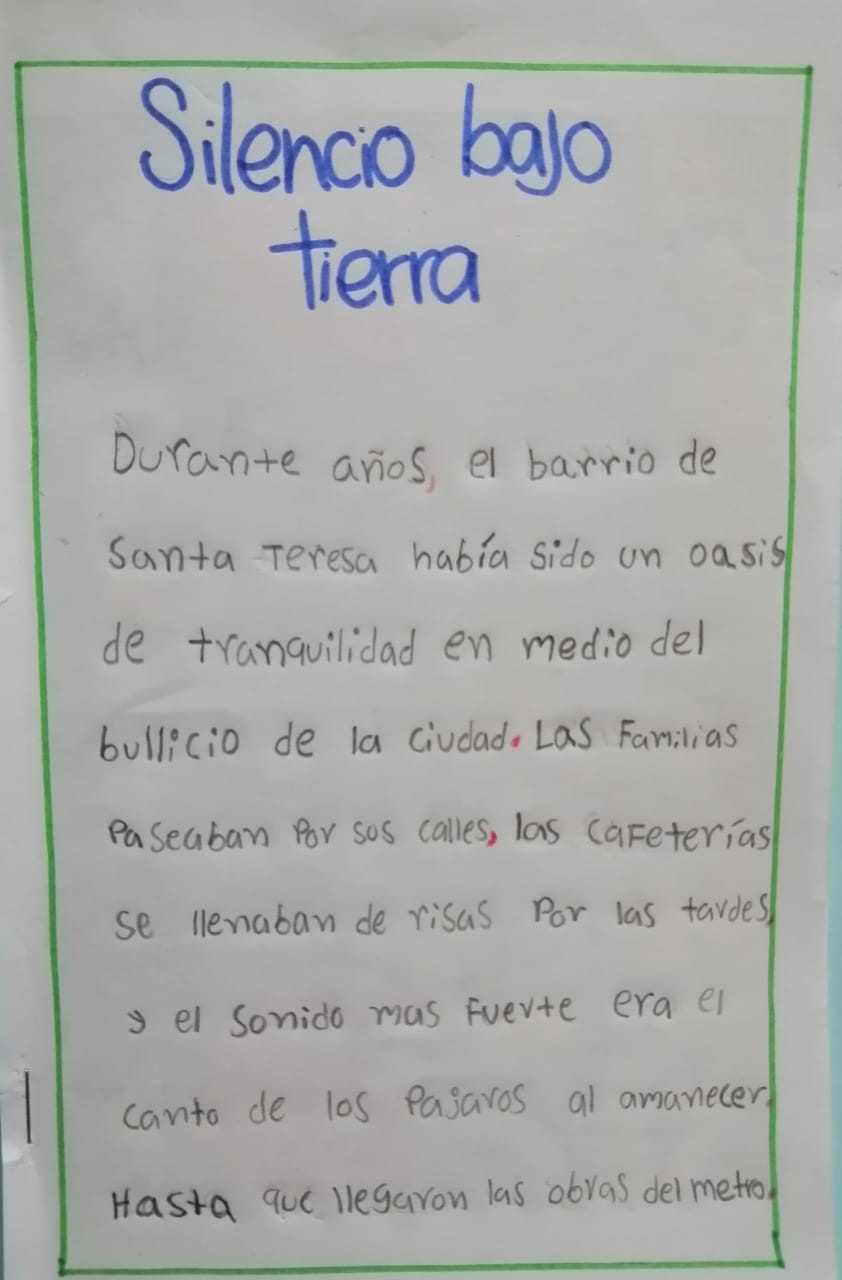 Silencio bajo
tierra
Durante años, el barrio de
Santa Teresa había sido un oasis
de tranquilidad en medio del
bullicio de la ciudad. Las Familias
Paseaban Por sus calles, las cafeterías
se llenaban de risas Por las tardes,
y el sonido mas fuerte era el
canto de los Pajaros al amanecer.
Hasta que llegaron las obras del metro.